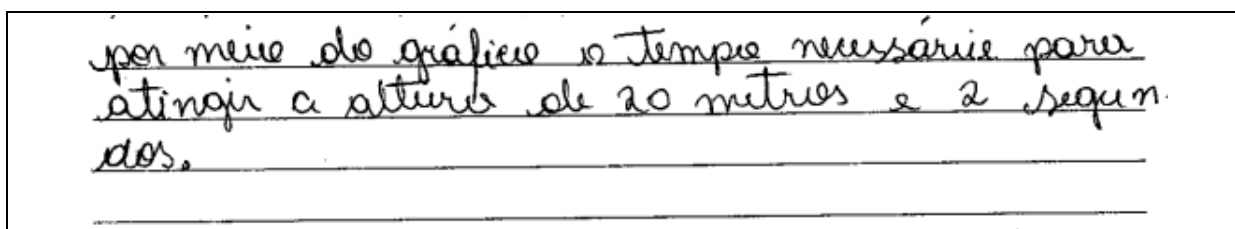 por meio do gráfico o tempo necessário para
atingir a altura de 20 metros e 2 segun.
dos.